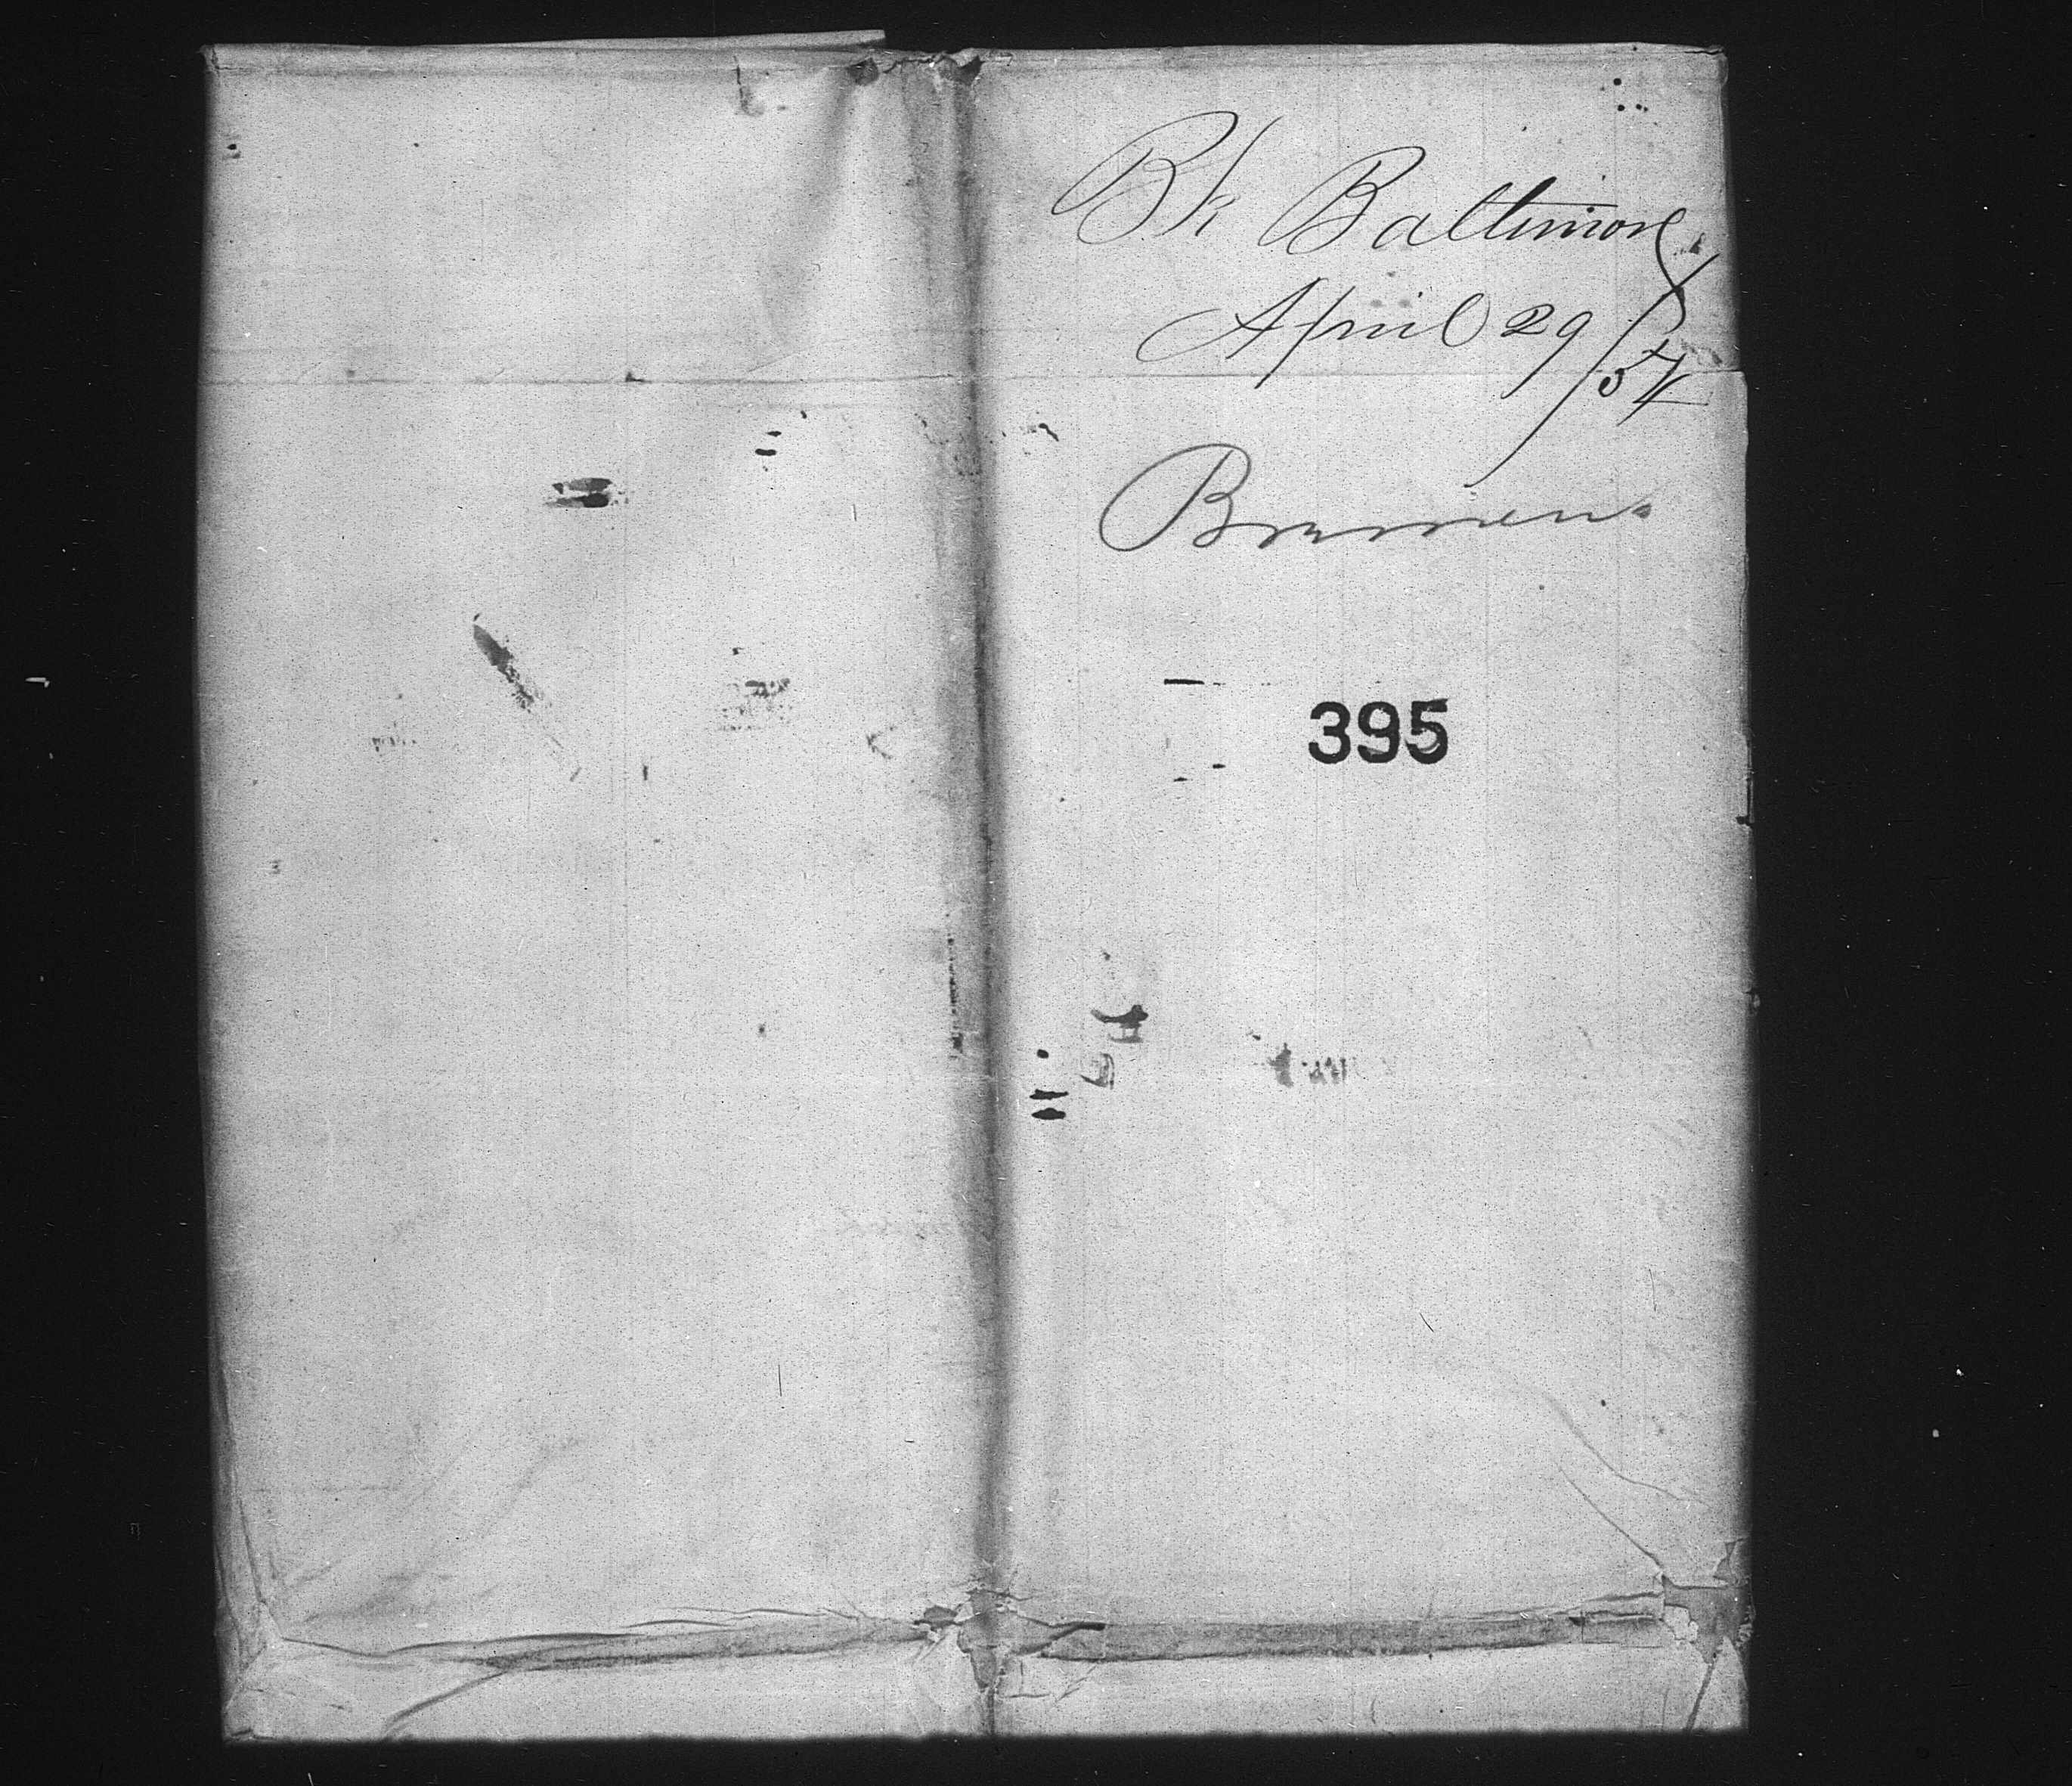 Bk Baltimore
April 29/54
Bremen
395